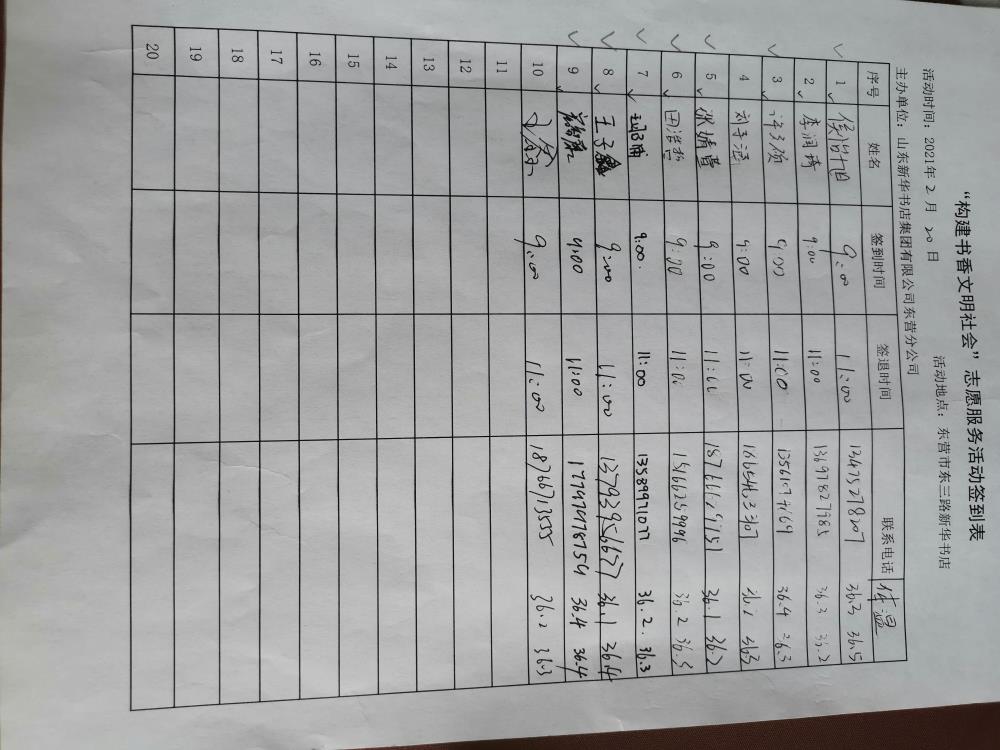 “构建书香文明社会”志愿服务活动签到表
活动时间：2021年2月20日 活动地点：东营市东三路新华书店
主办单位：山东新华书店集团有限公司东营分公司
序号 姓名 签到时间 签退时间 联系电话 体温
1 9:00 11:00 13475278207 36.3 36.5
2 李润琦 9:00 11:00 13697827985 36.3 36.2
3 许子颀 9:00 11:00 36.4 36.3
4 刘子涵 9:00 11:00 36.2 36.3
5 张婧萱 9:00 11:00 18766629751 36.1 36.2
6 田浩哲 9:00 11:00 15166259996 36.2 36.5
7 9:00. 11:00 13589971077 36.2. 36.3
8 王子鑫 9:00 11:00 13793956627 36.1 36.4
9 9:00 11:00 17747478754 36.4 36.4
10 9:00 11:00 18766713555 36.2 36.3
11
12
13
14
15
16
17
18
19
20